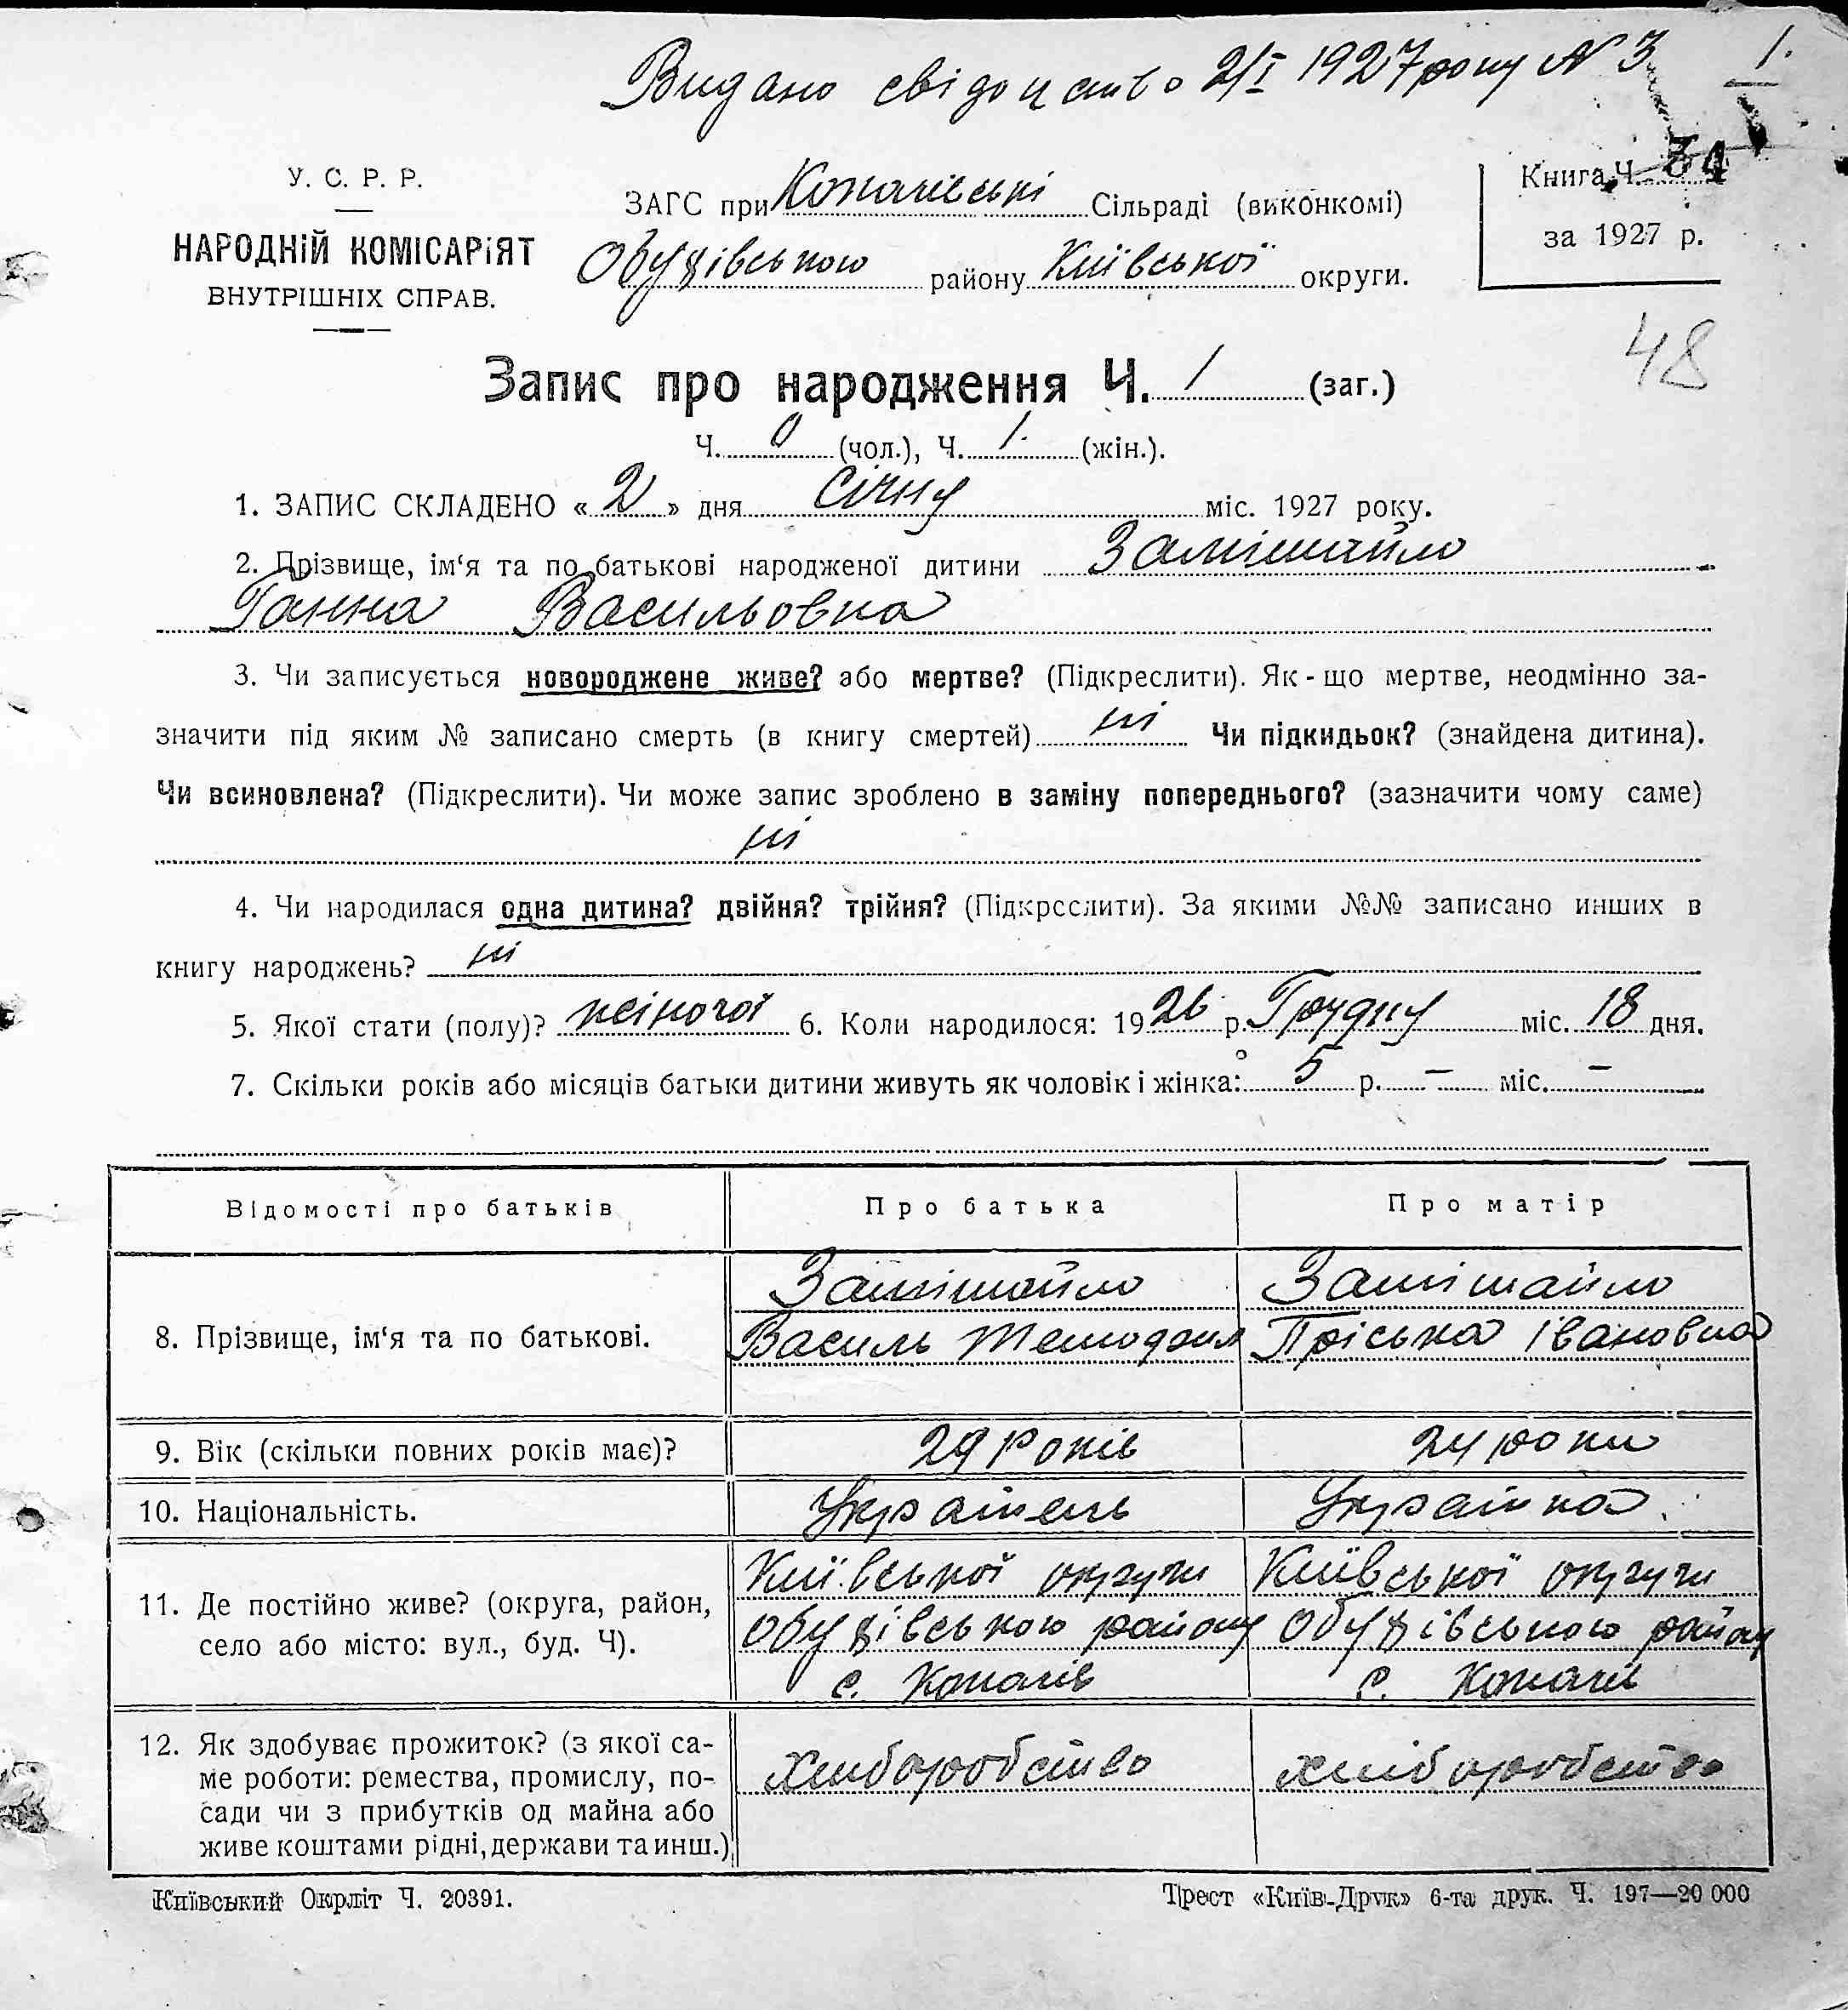 Видано свідоцтво 2/I 1927 року № 3
1.
У. С. Р. Р.
НАРОДНІЙ КОМІСАРІЯТ
ВНУТРІШНІХ СПРАВ.
ЗАГС при Копачівські Сільраді (виконкомі)
Обухівською району Київської округи.
Книга Ч. 34
за 1927 р.
48
Запис про народження Ч. 1 (заг.)
Ч. 0 (чол.), Ч. 1. (жін.).
1. ЗАПИС СКЛАДЕНО « 2 » дня Січня міс. 1927 року.
2. Прізвище, ім‘я та по батькові народженої дитини Замішайло
Ганна Васильовна
3. Чи записується новороджене живе? або мертве? (Підкреслити). Як-що мертве, неодмінно за-
значити під яким № записано смерть (в книгу смертей) ні Чи підкидьок? (знайдена дитина).
Чи всиновлена? (Підкреслити). Чи може запис зроблено в заміну попереднього? (зазначити чому саме)
ні
4. Чи народилася одна дитина? двійня? трійня? (Підкреслити). За якими №№ записано инших в
книгу народжень? ні
5. Якої стати (полу)? жіночої 6. Коли народилося: 1926 р. Грудня міс. 18 дня.
7. Скільки років або місяців батьки дитини живуть як чоловік і жінка: 5 р. — міс. —
Відомості про батьків
Про батька
Про матір
8. Прізвище, ім‘я та по батькові.
Замішайло
Василь
Замішайло
Пріська Івановна
9. Вік (скільки повних років має)?
29 Років
24 роки
10. Національність.
Українець
Українка
11. Де постійно живе? (округа, район,
село або місто: вул., буд. Ч).
Київської округи
Обухівською району
с. Копачів
Київської округи
Обухівською району
с. Копачів
12. Як здобуває прожиток? (з якої са-
ме роботи: ремества, промислу, по-
сади чи з прибутків од майна або
живе коштами рідні, держави та инш.)
хлиборобство
хліборобство
Київський Окрліт Ч. 20391.
Трест «Київ-Друк» 6-та друк. Ч. 197—20 000